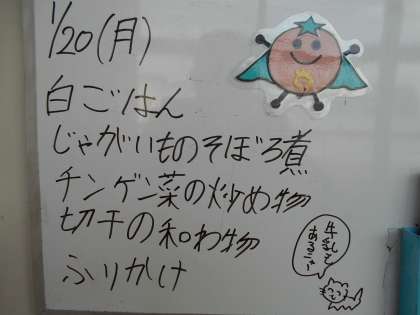 1/20(月)
白ごはん
じゃがいものそぼろ煮
チンゲン菜の炒め物
切干の和わ物
ふりかけ
牛乳も
あるニャー